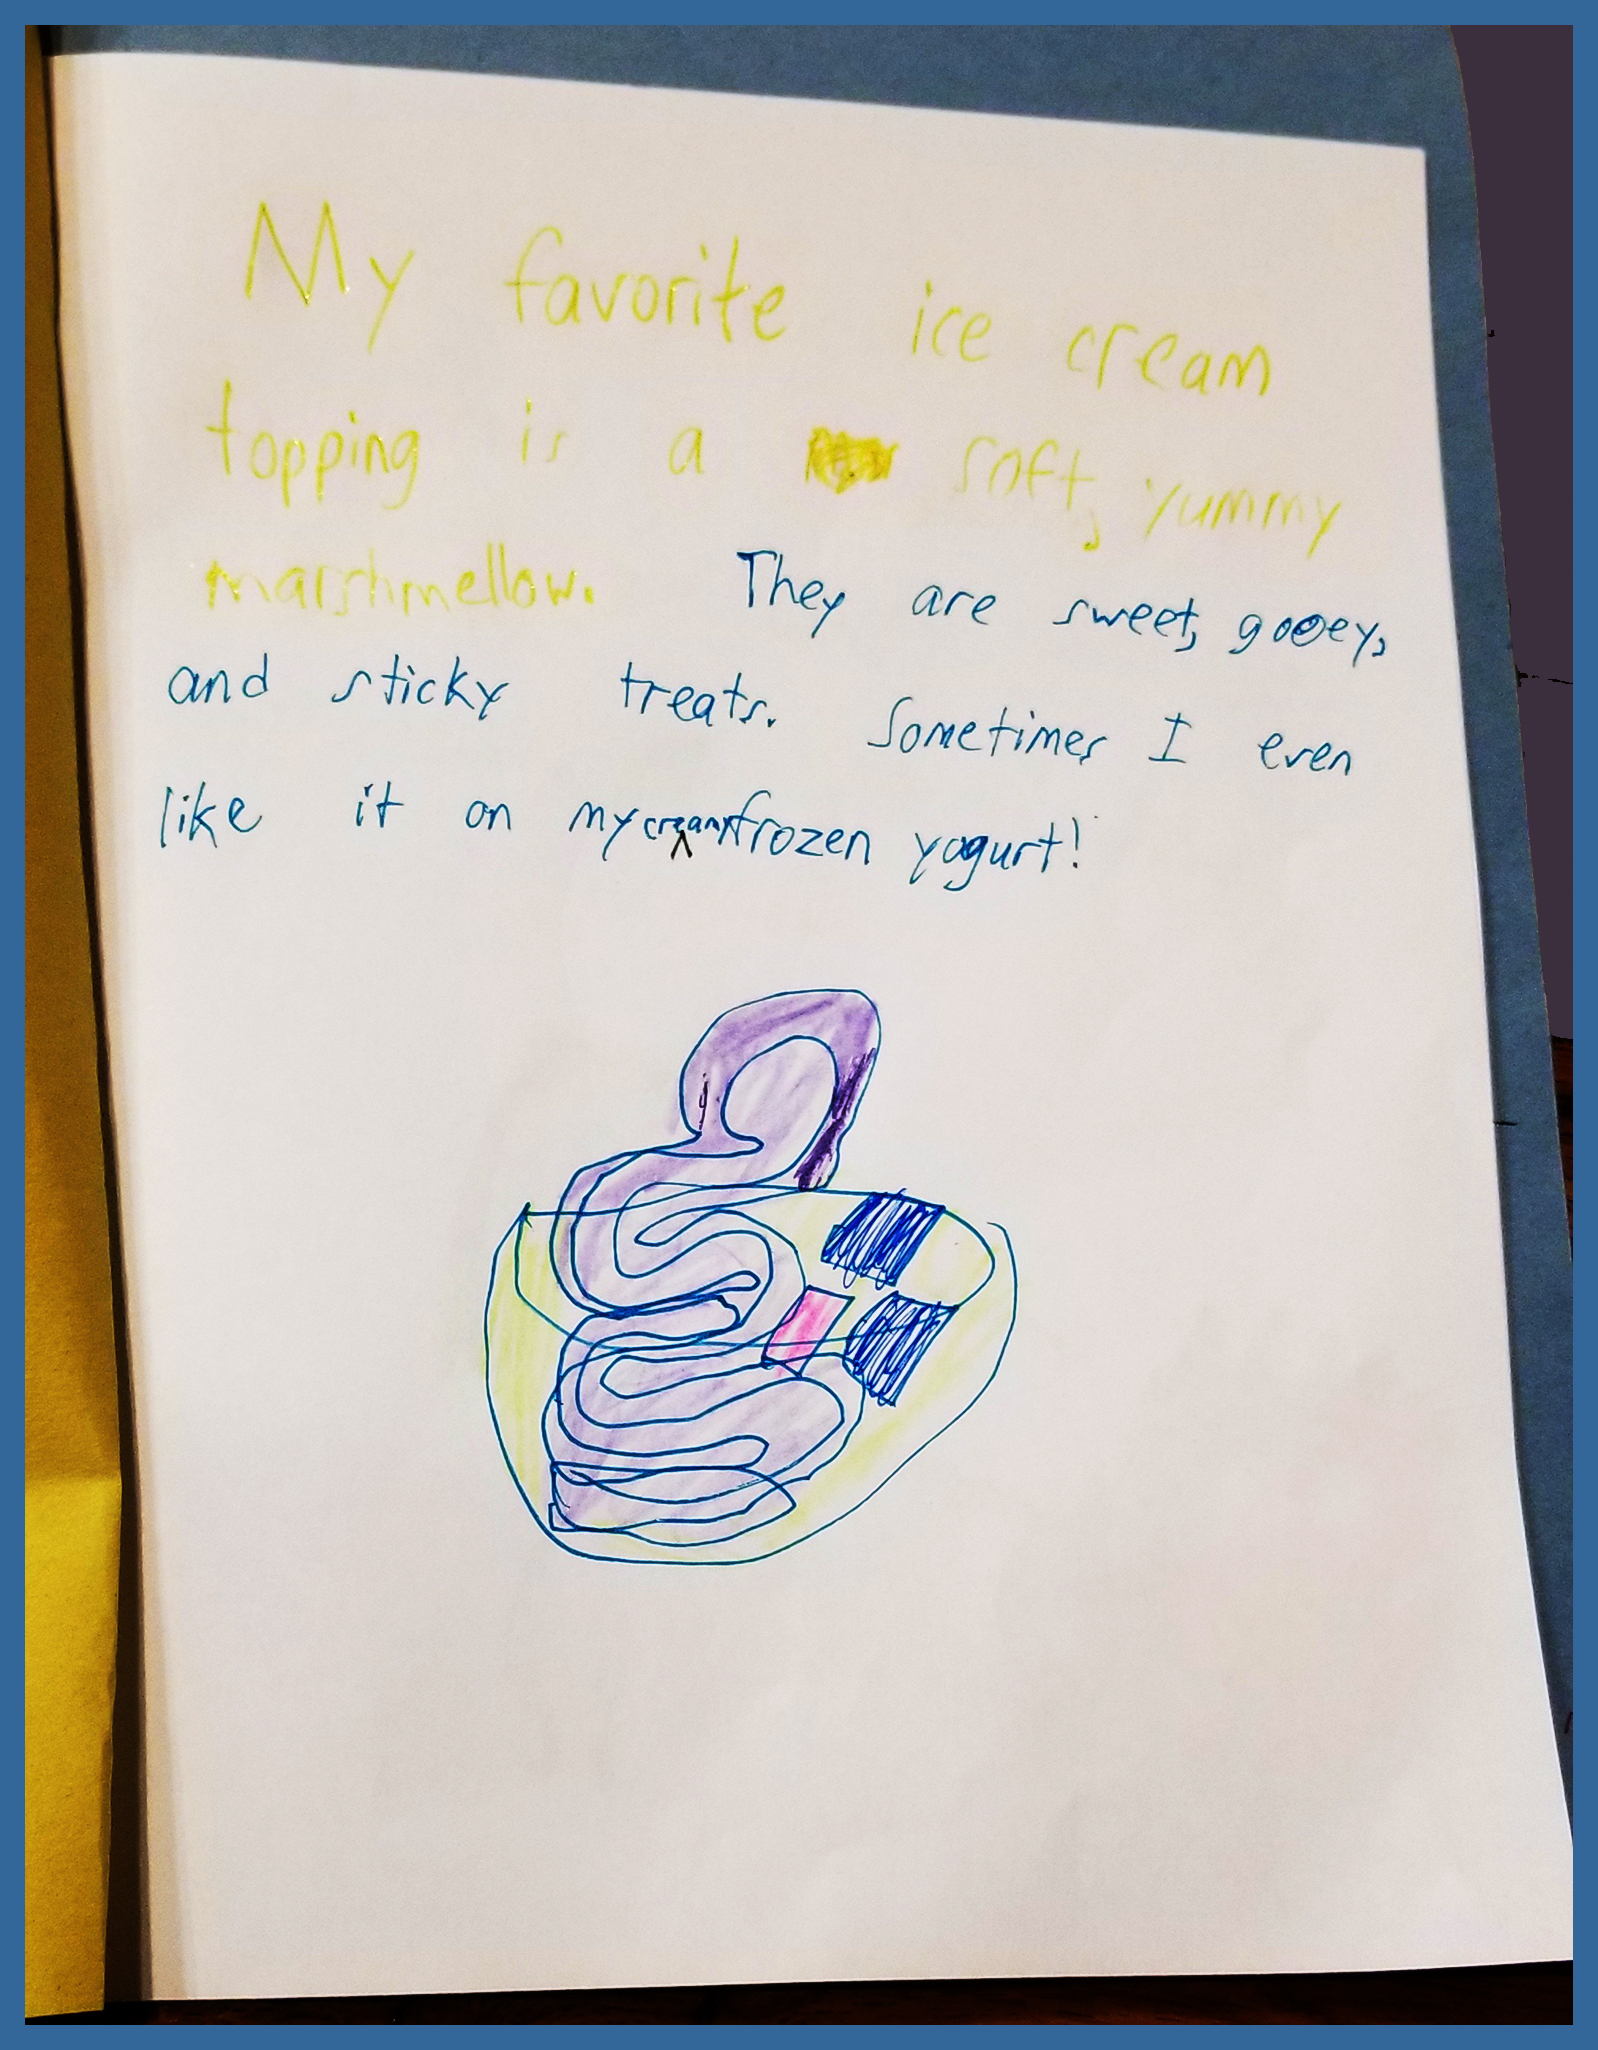 My favorite ice cream
topping is a soft, yummy
marshmellow. They are sweet, gooey,
and sticky treats. Sometimes I even
like it on my creamy frozen yogurt!